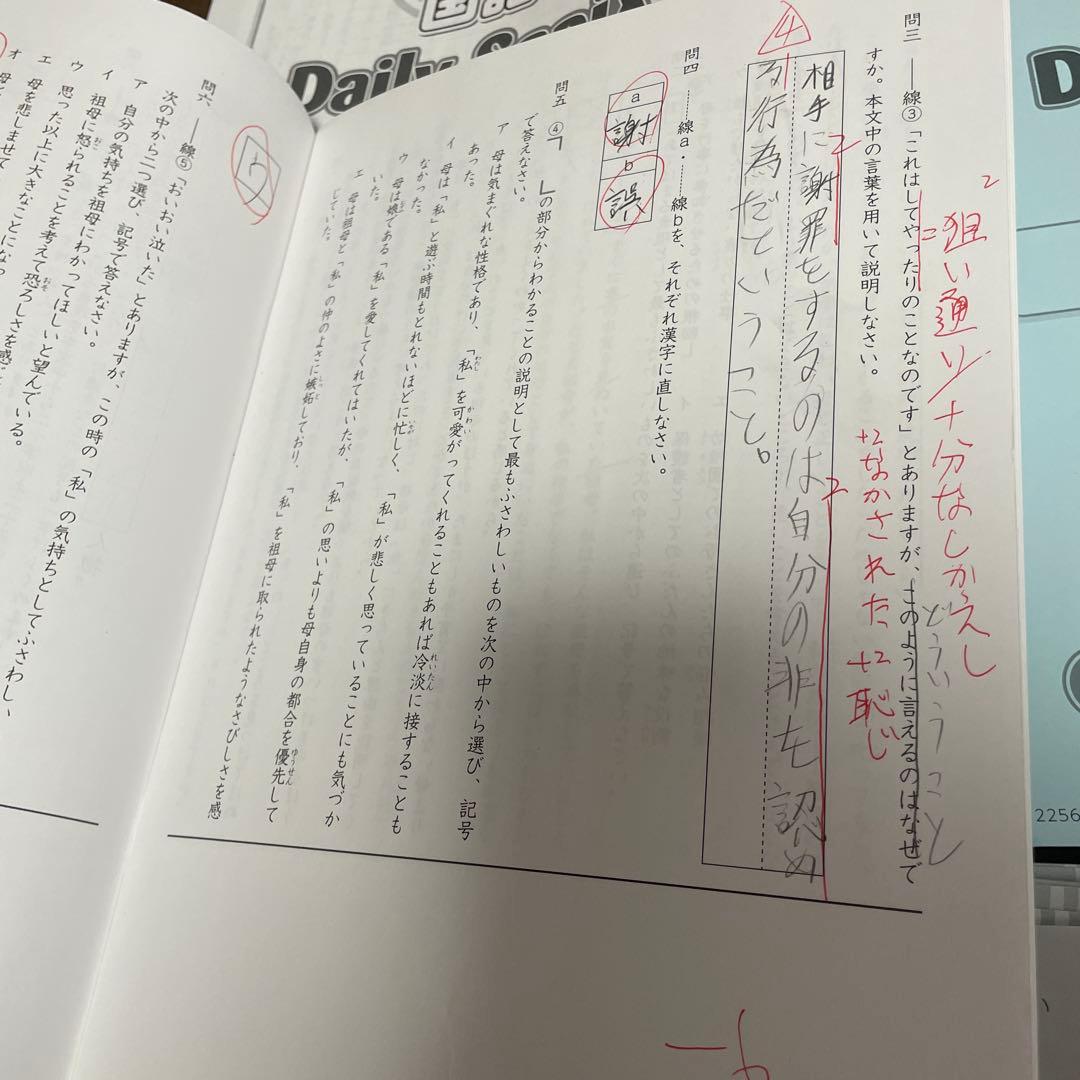 国語
Daily
問三 ――線③「これはしてやったりのことなのです」とありますが、このように言えるのはなぜで
すか。本文中の言葉を用いて説明しなさい。
2
狙い通り/十分なしかえし
どういうこと
+2なかされた +2恥じ
④
2
2
相手に謝罪をするのは自分の非も認め
る行為だということ。
問四 ……線a・……線bを、それぞれ漢字に直しなさい。
a 謝 b 誤
問五 ④「 」の部分からわかることの説明として最もふさわしいものを次の中から選び、記号
で答えなさい。
ア 母は気まぐれな性格であり、「私」を可愛がってくれることもあれば冷淡に接することも
あった。
イ 母は「私」と遊ぶ時間もとれないほどに忙しく、「私」が悲しく思っていることにも気づか
なかった。
ウ 母は娘である「私」を愛してくれてはいたが、「私」の思いよりも母自身の都合を優先して
いた。
エ 母は祖母と「私」の仲のよさに嫉妬しており、「私」を祖母に取られたようなさびしさを感
じていた。
ウ
問六 ――線⑤「おいおい泣いた」とありますが、この時の「私」の気持ちとしてふさわしい
次の中から二つ選び、記号で答えなさい。
ア 自分の気持ちを祖母にわかってほしいと望んでいる。
イ 祖母に怒られることを考えて恐ろしさを感じ
ウ 思った以上に大きなことになっ
エ 母を悲しませて
オ
2256